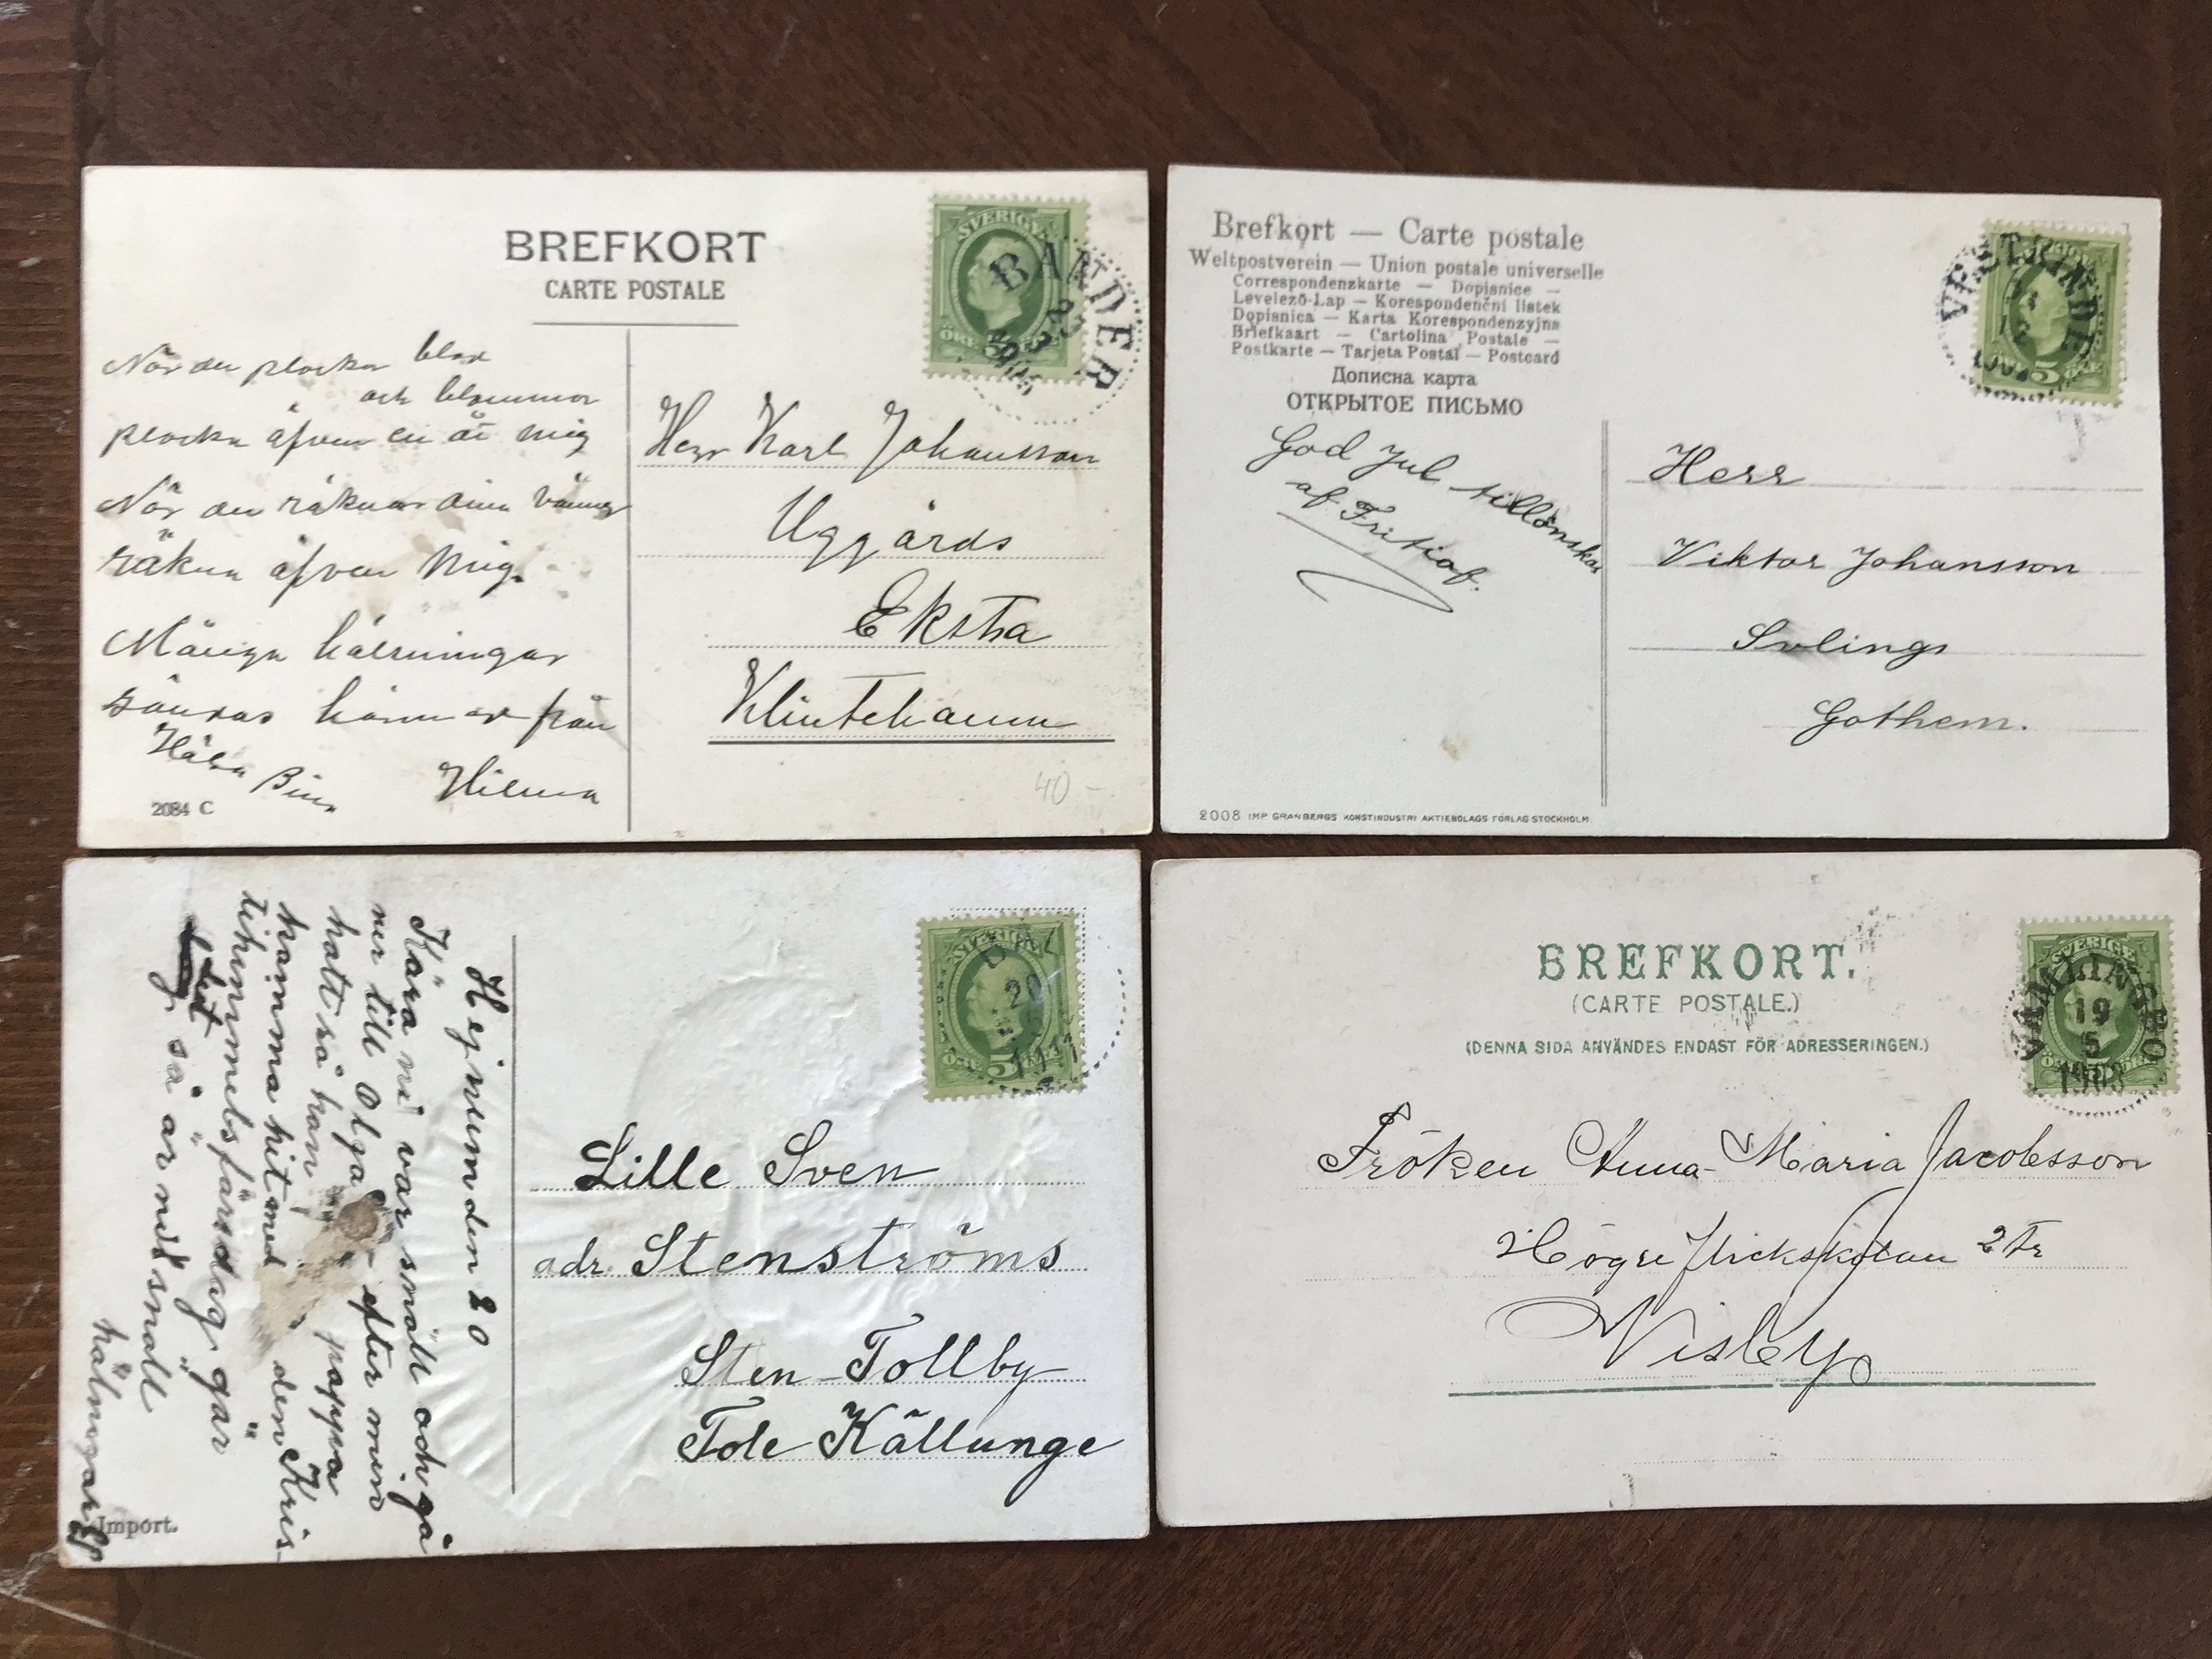 BREFKORT
CARTE POSTALE
SVERIGE
BANDER
ÖRE 5
När du plockar blad
och blommor
plocka äfven en åt mig
När du räknar dina vänner
räkna äfven mig.
Många hälsningar
sändas härmed från
Hälsa
Hilma
2084 C
Herr Karl Johansson
Uggårds
Eksta
Klintehamn
40 -
Brefkort — Carte postale
Weltpostverein — Union postale universelle
Correspondenzkarte — Dopisnice —
Levelező-Lap — Korespondenční listek
Dopisnica — Karta Korespondenzyjna
Briefkaart — Cartolina Postale —
Postkarte — Tarjeta Postal — Postcard
Дописна карта
ОТКРЫТОЕ ПИСЬМО
VESTKINDE
5 ÖRE
God Jul tillönskas
af Fritiof.
Herr
Viktor Johansson
Svlings
Gothem.
2008 IMP GRANBERGS KONSTINDUSTRI AKTIEBOLAGS FÖRLAG STOCKHOLM.
Hejnum den 20
Kära ni var snäll och gå
ner till Olga efter min
hatt så han pappa
hamma hit med den Kris-
tihimmelsfärsdag, gär
det, så är ni snäll
hälngar
Import.
SVERIGE
DAL
20
ÖRE 5
Lille Sven
adr. Stenströms
Sten-Tollby
Tole Källunge
BREFKORT.
(CARTE POSTALE.)
(DENNA SIDA ANVÄNDES ENDAST FÖR ADRESSERINGEN.)
SVERIGE
HAMLINGBO
19
5
1903
Fröken Anna-Maria Jacobsson
Högre flickskolan 2 tr
Visby